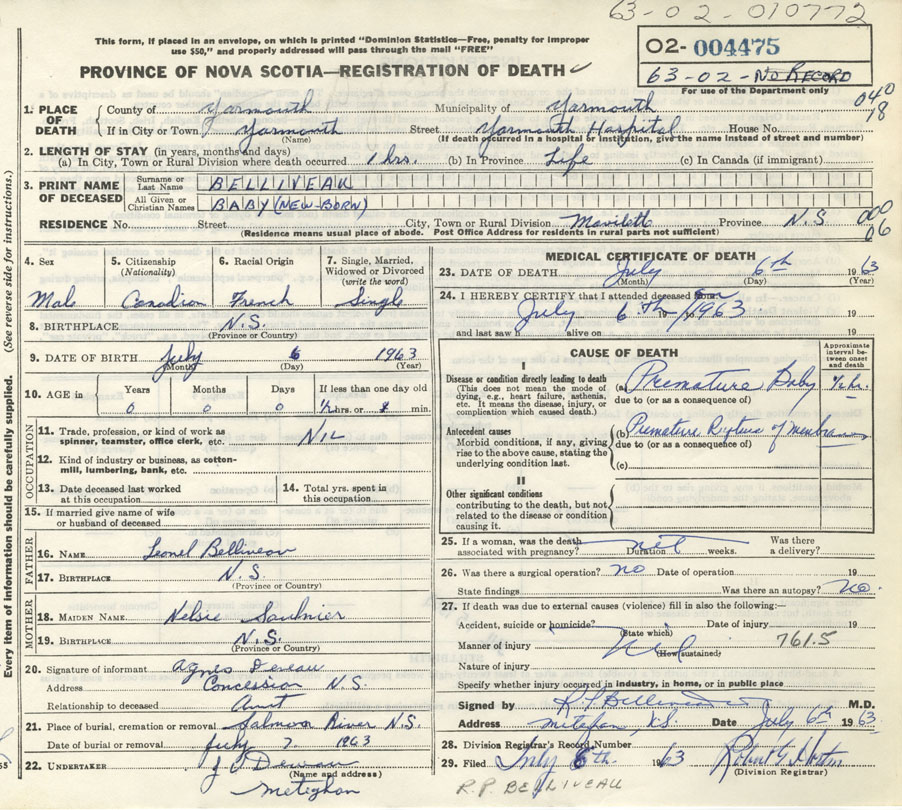 63-02-010772
This form, if placed in an envelope, on which is printed "Dominion Statistics—Free, penalty for improper
use $50," and properly addressed will pass through the mail "FREE"
PROVINCE OF NOVA SCOTIA—REGISTRATION OF DEATH
02-004475
63-02-NO RECORD
For use of the Department only
1. PLACE OF DEATH County of Yarmouth Municipality of Yarmouth 040
If in City or Town Yarmouth Street Yarmouth Hospital House No. 78
(Name) (If death occurred in a hospital or institution, give the name instead of street and number)
2. LENGTH OF STAY (in years, months and days)
(a) In City, Town or Rural Division where death occurred 1 hrs. (b) In Province Life (c) In Canada (if immigrant)
3. PRINT NAME OF DECEASED Surname or Last Name BELLIVEAU
All Given or Christian Names BABY (NEW-BORN)
RESIDENCE No. Street City, Town or Rural Division Mavilette Province N.S. 000
(Residence means usual place of abode. Post Office Address for residents in rural parts not sufficient) 06
(See reverse side for instructions.)
Every item of information should be carefully supplied.
4. Sex Male
5. Citizenship (Nationality) Canadian
6. Racial Origin French
7. Single, Married, Widowed or Divorced (write the word) Single
8. BIRTHPLACE N.S.
(Province or Country)
9. DATE OF BIRTH July 6 1963
(Month) (Day) (Year)
10. AGE in Years Months Days If less than one day old
0 0 0 1/2 hrs. or min.
OCCUPATION
11. Trade, profession, or kind of work as spinner, teamster, office clerk, etc. NIL
12. Kind of industry or business, as cotton-mill, lumbering, bank, etc.
13. Date deceased last worked at this occupation
14. Total yrs. spent in this occupation
15. If married give name of wife or husband of deceased
FATHER
16. NAME Leonel Belliveau
17. BIRTHPLACE N.S.
(Province or Country)
MOTHER
18. MAIDEN NAME Nelsie Saulnier
19. BIRTHPLACE N.S.
(Province or Country)
20. Signature of informant Agnes Deveau
Address Concession N.S.
Relationship to deceased Aunt
21. Place of burial, cremation or removal Salmon River N.S.
Date of burial or removal July 7. 1963
22. UNDERTAKER
(Name and address)
Meteghan
MEDICAL CERTIFICATE OF DEATH
23. DATE OF DEATH July 6th 1963
(Month) (Day) (Year)
24. I HEREBY CERTIFY that I attended deceased from
July 6th 19 1963
and last saw h alive on 19
CAUSE OF DEATH
Approximate interval between onset and death
I
Disease or condition directly leading to death
(This does not mean the mode of dying, e.g., heart failure, asthenia, etc. It means the disease, injury, or complication which caused death.)
(a) Premature Baby 1/2 hr.
due to (or as a consequence of)
Antecedent causes
Morbid conditions, if any, giving rise to the above cause, stating the underlying condition last.
(b) Premature Rupture of membranes
due to (or as a consequence of)
(c)
II
Other significant conditions
contributing to the death, but not related to the disease or condition causing it.
25. If a woman, was the death associated with pregnancy? nil Duration weeks. Was there a delivery?
26. Was there a surgical operation? no Date of operation 19
State findings Was there an autopsy? no
27. If death was due to external causes (violence) fill in also the following:—
Accident, suicide or homicide? Date of injury 19
(State which)
Manner of injury Nil 761.5
(How sustained)
Nature of injury
Specify whether injury occurred in industry, in home, or in public place
Signed by R.P. Belliveau M.D.
Address Meteghan, N.S. Date July 6th 1963
28. Division Registrar's Record Number
29. Filed July 6th 1963
(Division Registrar)
R.P. BELLIVEAU